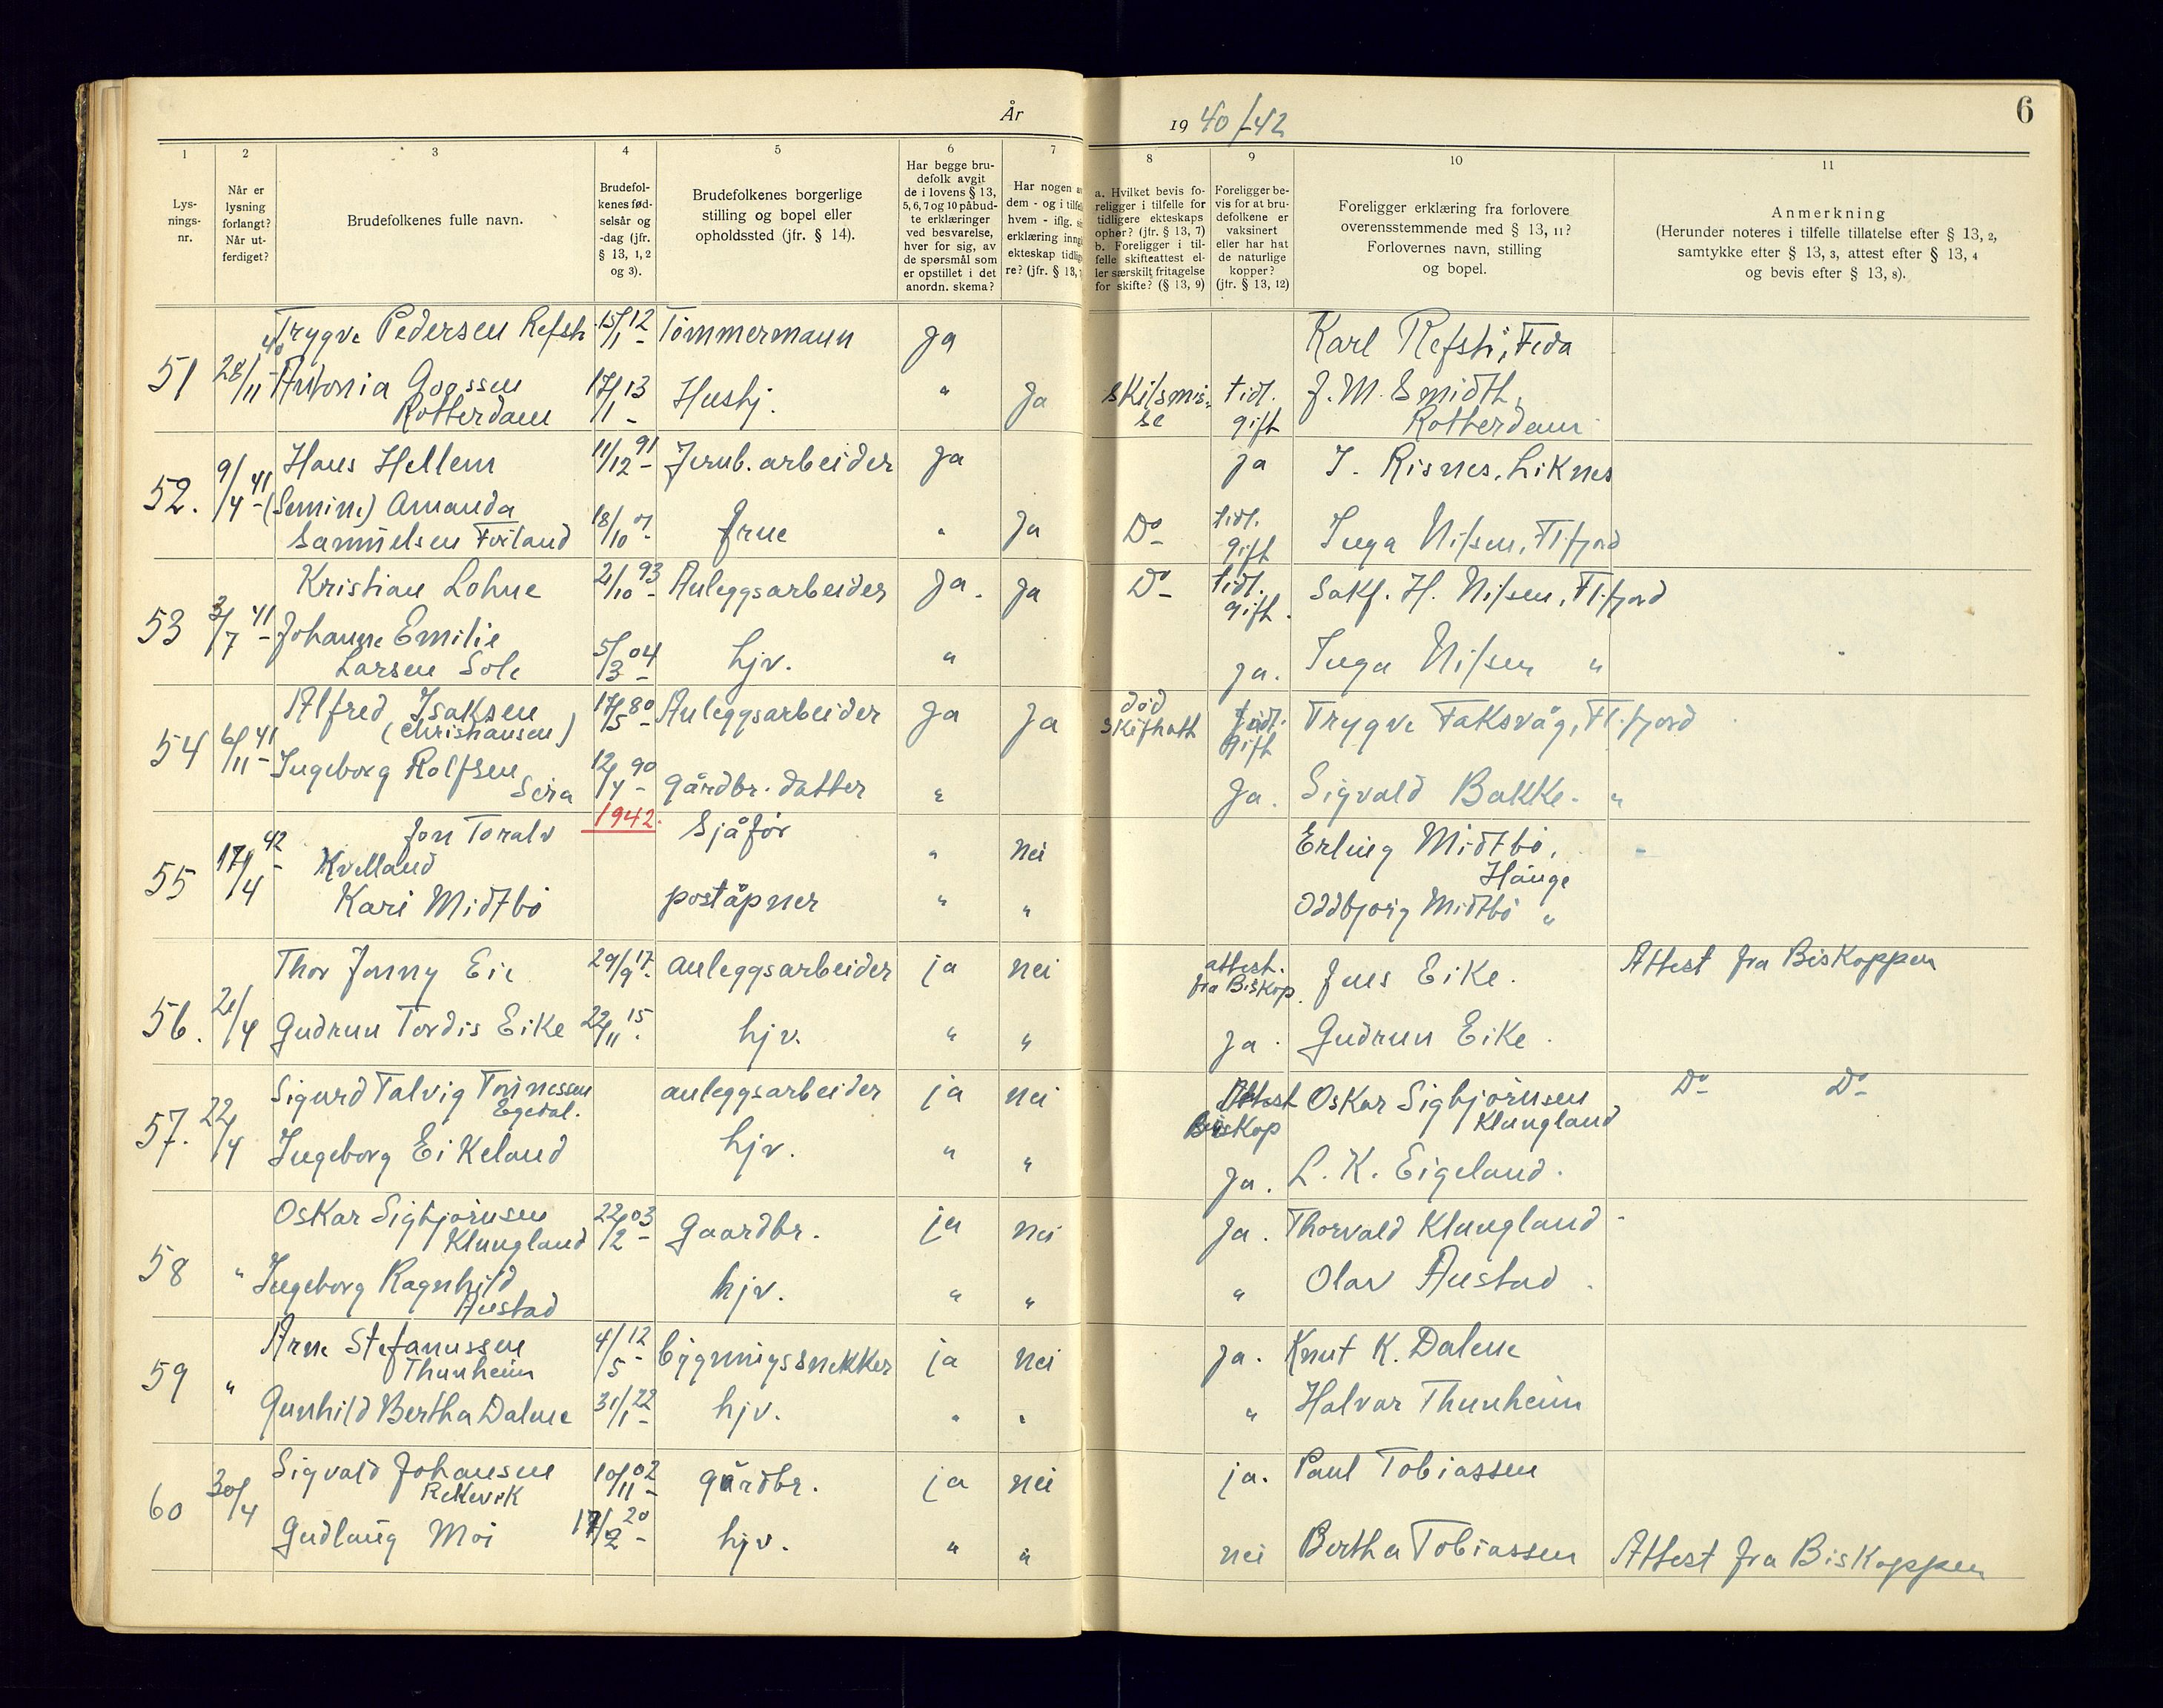 År 1940/-42
6
1
2
3
4
5
6
7
8
9
10
11
Lys-
nings-
nr.
Når er
lysning
forlangt?
Når ut-
ferdiget?
Brudefolkenes fulle navn.
Brudefol-
kenes fød-
selsår og
-dag (jfr.
§ 13, 1, 2
og 3).
Brudefolkenes borgerlige
stilling og bopel eller
opholdssted (jfr. § 14).
Har begge bru-
defolk avgit
de i lovens § 13,
5, 6, 7 og 10 påbud-
te erklæringer
ved besvarelse,
hver for sig, av
de spørsmål som
er opstillet i det
anordn. skema?
Har nogen
dem - og i
hvem - iflg.
erklæring
ekteskap
re? (jfr. § 13,
a. Hvilket bevis fo-
religger i tilfelle for
tidligere ekteskaps
ophør? (jfr. § 13, 7)
b. Foreligger i til-
felle skifteattest el-
ler særskilt fritagelse
for skifte? (§ 13, 9)
Foreligger be-
vis for at bru-
defolkene er
vaksinert
eller har hat
de naturlige
kopper?
(jfr. § 13, 12)
Foreligger erklæring fra forlovere
overensstemmende med § 13, 11?
Forlovernes navn, stilling
og bopel.
Anmerkning
(Herunder noteres i tilfelle tillatelse efter § 13, 2,
samtykke efter § 13, 3, attest efter § 13, 4
og bevis efter § 13, 8).
51 28/11 40 Trygve Pedersen Refsti 15/1 12 - Tömmermann Ja Karl Refsti, Feda
Antonia Goossen 17/1 13 - Hushj. " Ja skilsmis- tidl. J. M. Smidth,
Rotterdam se gift Rotterdam
52. 9/4 41 - Hans Hellem 11/12 91 - Jernb. arbeider Ja Ja J. Risnes, Liknes
(Semine) Amanda
Samuelsen Foiland 18/10 01 - frue " Ja Do tidl. gift Inga Nilsen, Fl.fjord
53 3/7 41 - Kristian Lohne 2/10 93 - Anleggsarbeider Ja. Ja Do tidl. gift. Sakf. H. Nilsen, Fl.fjord
Johanne Emilie
Larsen Sole 5/3 04 - hjv. " ja. Inga Nilsen "
54 6/11 41 - Alfred Isaksen 17/5 80 - Anleggsarbeider Ja Ja död tidl. Trygve Faksvåg, Fl.fjord
(Christiansen) skifteatt gift
Ingeborg Rolfsen
Sira 12/4 90 - gårdbr. datter " Ja. Sigvald Bakke. "
1942.
55 17/4 42 - Jon Toralv Sjåför " nei Erling Midtbö,
Kvelland Hauge
Kari Midtbö poståpner " " Oddbjörg Midtbö "
56. 21/4 Thor Jonny Eie 29/9 17 - anleggsarbeider ja nei attest. Jens Eike. Attest fra Biskoppen
fra Biskop.
Gudrun Tordis Eike 22/11 15 - hjv. " " Ja. Gudrun Eike.
57. 22/4 Sigurd Talvig Tönnessen anleggsarbeider ja nei Attest Oskar Sigbjörnsen Do Do
Egedal. Biskop Klungland
Ingeborg Eikeland hjv. " " Ja. L. K. Eigeland.
58 " Oskar Sigbjörnsen 22/2 03 - Gaardbr. ja nei Ja. Thorvald Klungland
Klungland
Ingeborg Ragnhild hjv. " " " Olav Austad.
Austad
59 " Arne Stefanussen 4/5 12 - bygningssnekker ja nei Ja. Knut K. Dalene
Thunheim
Gunhild Bertha Dalene 31/1 22 - hjv. " " " Halvar Thunheim
60 30/4 Sigvald Johansen 10/11 02 - gårdbr. ja nei ja. Paul Tobiassen
Rekevik
Gudlaug Moi 17/2 20 - hjv. " " nei Bertha Tobiassen Attest fra Biskoppen